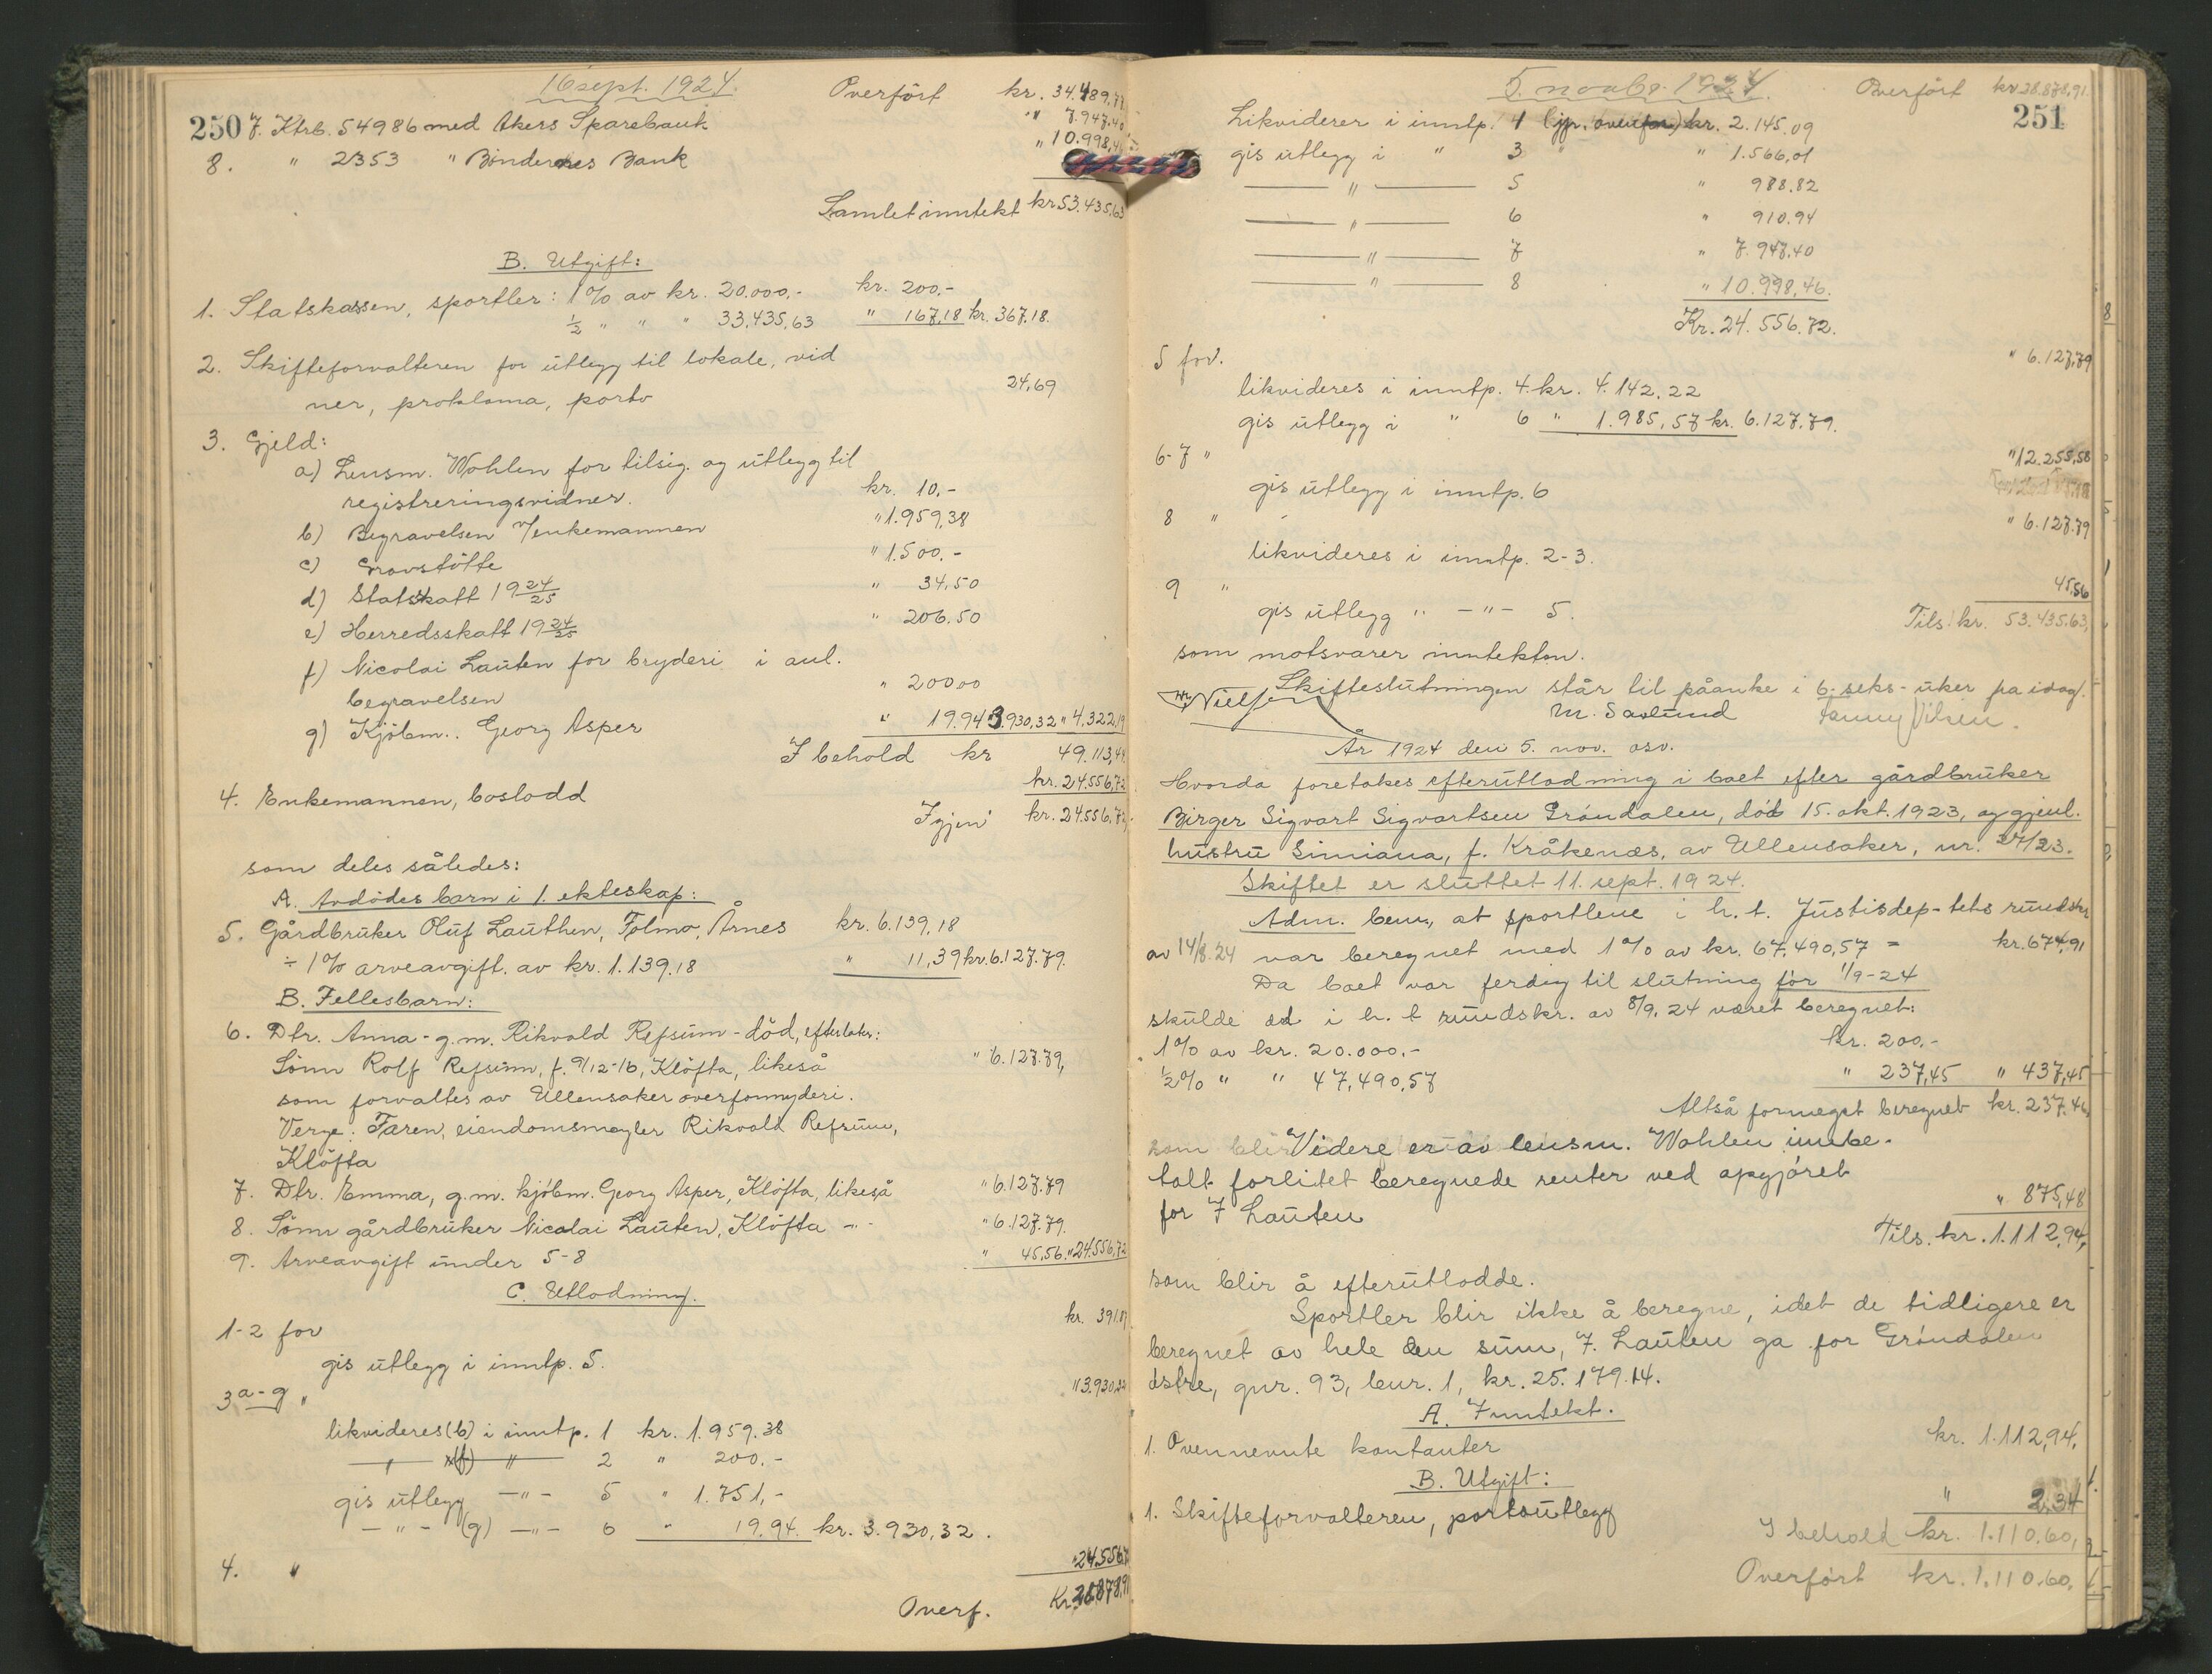 16 sept. 1924. Overført kr. 34.489,77
250 7. Ktrb. 54986 med Akers Sparebank " 7.947.40
8. " 2353 " Bøndernes Bank " 10.998,46
Samlet inntekt kr 53.435,63
B. Utgift:
1. Statskassen, sportler: 1% av kr. 20.000,- kr. 200,-
½ " " " 33,435,63 " 167,18 kr. 367,18.
2. Skifteforvalteren for utlegg til lokale, vid
ner, proklama, porto 24,69
3. Gjeld:
a) Lensm. Wohlen for tilsig. og utlegg til
registreringsvidner. kr. 10,-
b) Begravelsen /enkemannen " 1.959,38
c) Gravstøtte " 1.500.-
d) Statsskatt 19 24/25 " 34,50
e) Herredsskatt 19 24/25 " 206.50
f) Nicolai Lauten for bryderi i anl.
begravelsen " 200.00
g) Kjøbm.. Georg Asper " 19.94 3.930,32 " 4.322,19
I behold kr 49.113,44
4. Enkemannen, boslodd kr. 24.556,72
Igjen kr. 24.556.72,
som deles således:
A. Avdødes barn i 1. ekteskap:
5. Gårdbruker Oluf Lauthen, Folmo, Årnes kr. 6.139,18
÷ 1% arveavgift. av kr. 1.139.18 " 11,39 kr. 6.127.79.
B. Fellesbarn:
6. Dtr. Anna - g.m. Rikvald Refsum - død, efterlater:
Sønn Rolf Refsum, f. 9/12-16, Kløfta, likeså " 6.127.79,
som forvaltes av Ullensaker overformynderi.
Verge: Faren, eiendomsmegler Rikvald Refsum,
Kløfta
7. Dtr. Emma, g.m. kjøbm. Georg Asper, Kløfta, likeså " 6.127.79
8. Sønn gårdbruker Nicolai Lauten, Kløfta -"- " 6.127.79.
9. Arveavgift under 5-8 " 45,56. " 24.556,72
C. Utlodning.
1-2 for kr. 391.87
gis utlegg i inntp. 5.
3 a-g " " 3.930,32
likvideres (b) i inntp. 1 kr. 1.959.38
" (f) " 2 " 200.-
gis utlegg -"- 5 " 1.751,-
-"- (g) -"- 6 " 19.94. kr. 3.930,32.
4. " " 24.556.72
Overf. Kr. 28.878,91
5. novbr. 1924. Overført kr 28.878,91.
251
Likviderer i inntp. 1 (jfr. ovenfor) kr. 2.145.09
gis utlegg i " 3 " " 1.566,01
" 5 " 988.82
" 6 " 910.94
" 7 " 7.947.40
" 8 " 10.998,46.
Kr. 24.556.72.
5 for. " 6.127,79
likvideres i inntp. 4. kr. 4.142.22
gis utlegg i " 6 " 1.985,57 kr. 6.127.79.
6-7 " " 12.255,58
gis utlegg i inntp. 6
8 " " 6.127.79
likvideres i inntp. 2-3.
9 " 45,56
gis utlegg " -"- 5. Tils. kr. 53.435.63,
som motsvarer inntekten.
Skifteslutningen står til påanke i 6. seks - uker fra idag.
Nielsen M. Savlund Fanny Nilsen.
År 1924 den 5. nov. osv.
Hvorda foretakes efterutlodning i boet efter gårdbruker
Birger Sigvart Sigvartsen Grøndalen, død 15. okt. 1923, og gjenl.
hustru Simiana, f. Kråkenæs, av Ullensaker, nr. 27/23.
Skiftet er sluttet 11. sept. 1924.
Adm. bem., at sportlene i h. t. Justisdep-tets rundskr
av 14/8.24 var beregnet med 1% av kr. 67.490,57 = kr. 674,91
Da boet var ferdig til slutning før 1/9-24
skulde ed i h. t rundskr. av 8/9.24 været beregnet:
1% av kr. 20.000.- kr. 200.-
½% " " 47,490,57 " 237,45 " 437,45
Altså formeget beregnet kr. 237.46,
som blir Videre er av lensm. Wohlen innbe-
talt forlitet beregnede renter ved opgjøret
for J Lauten " 875,48
Tils. kr. 1.112,94,
som blir å efterutlodde.
Sportler blir ikke å beregne, idet de tidligere er
beregnet av hele den sum, J. Lauten ga for Grøndalen
østre, gnr. 93, bnr. 1, kr. 25.179.14.
A. Inntekt.
1. Ovennevnte kontanter kr. 1.112,94.
B. Utgift:
1. Skifteforvalteren, portoutlegg " 2,34
I behold kr. 1.110.60,
Overført kr. 1.110.60.